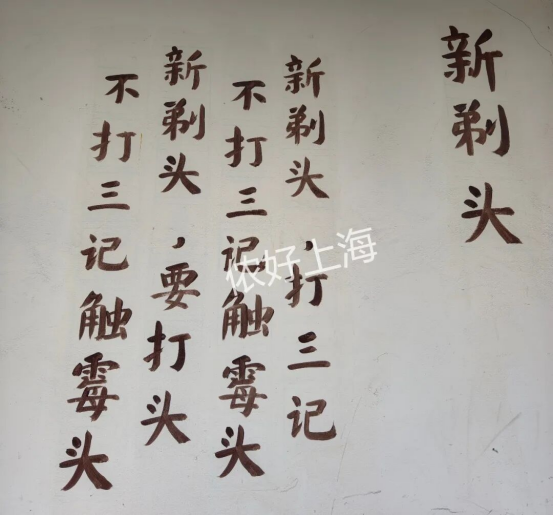 新剃头
新剃头，打三记
不打三记触霉头
新剃头，要打头
不打三记触霉头
侬好上海